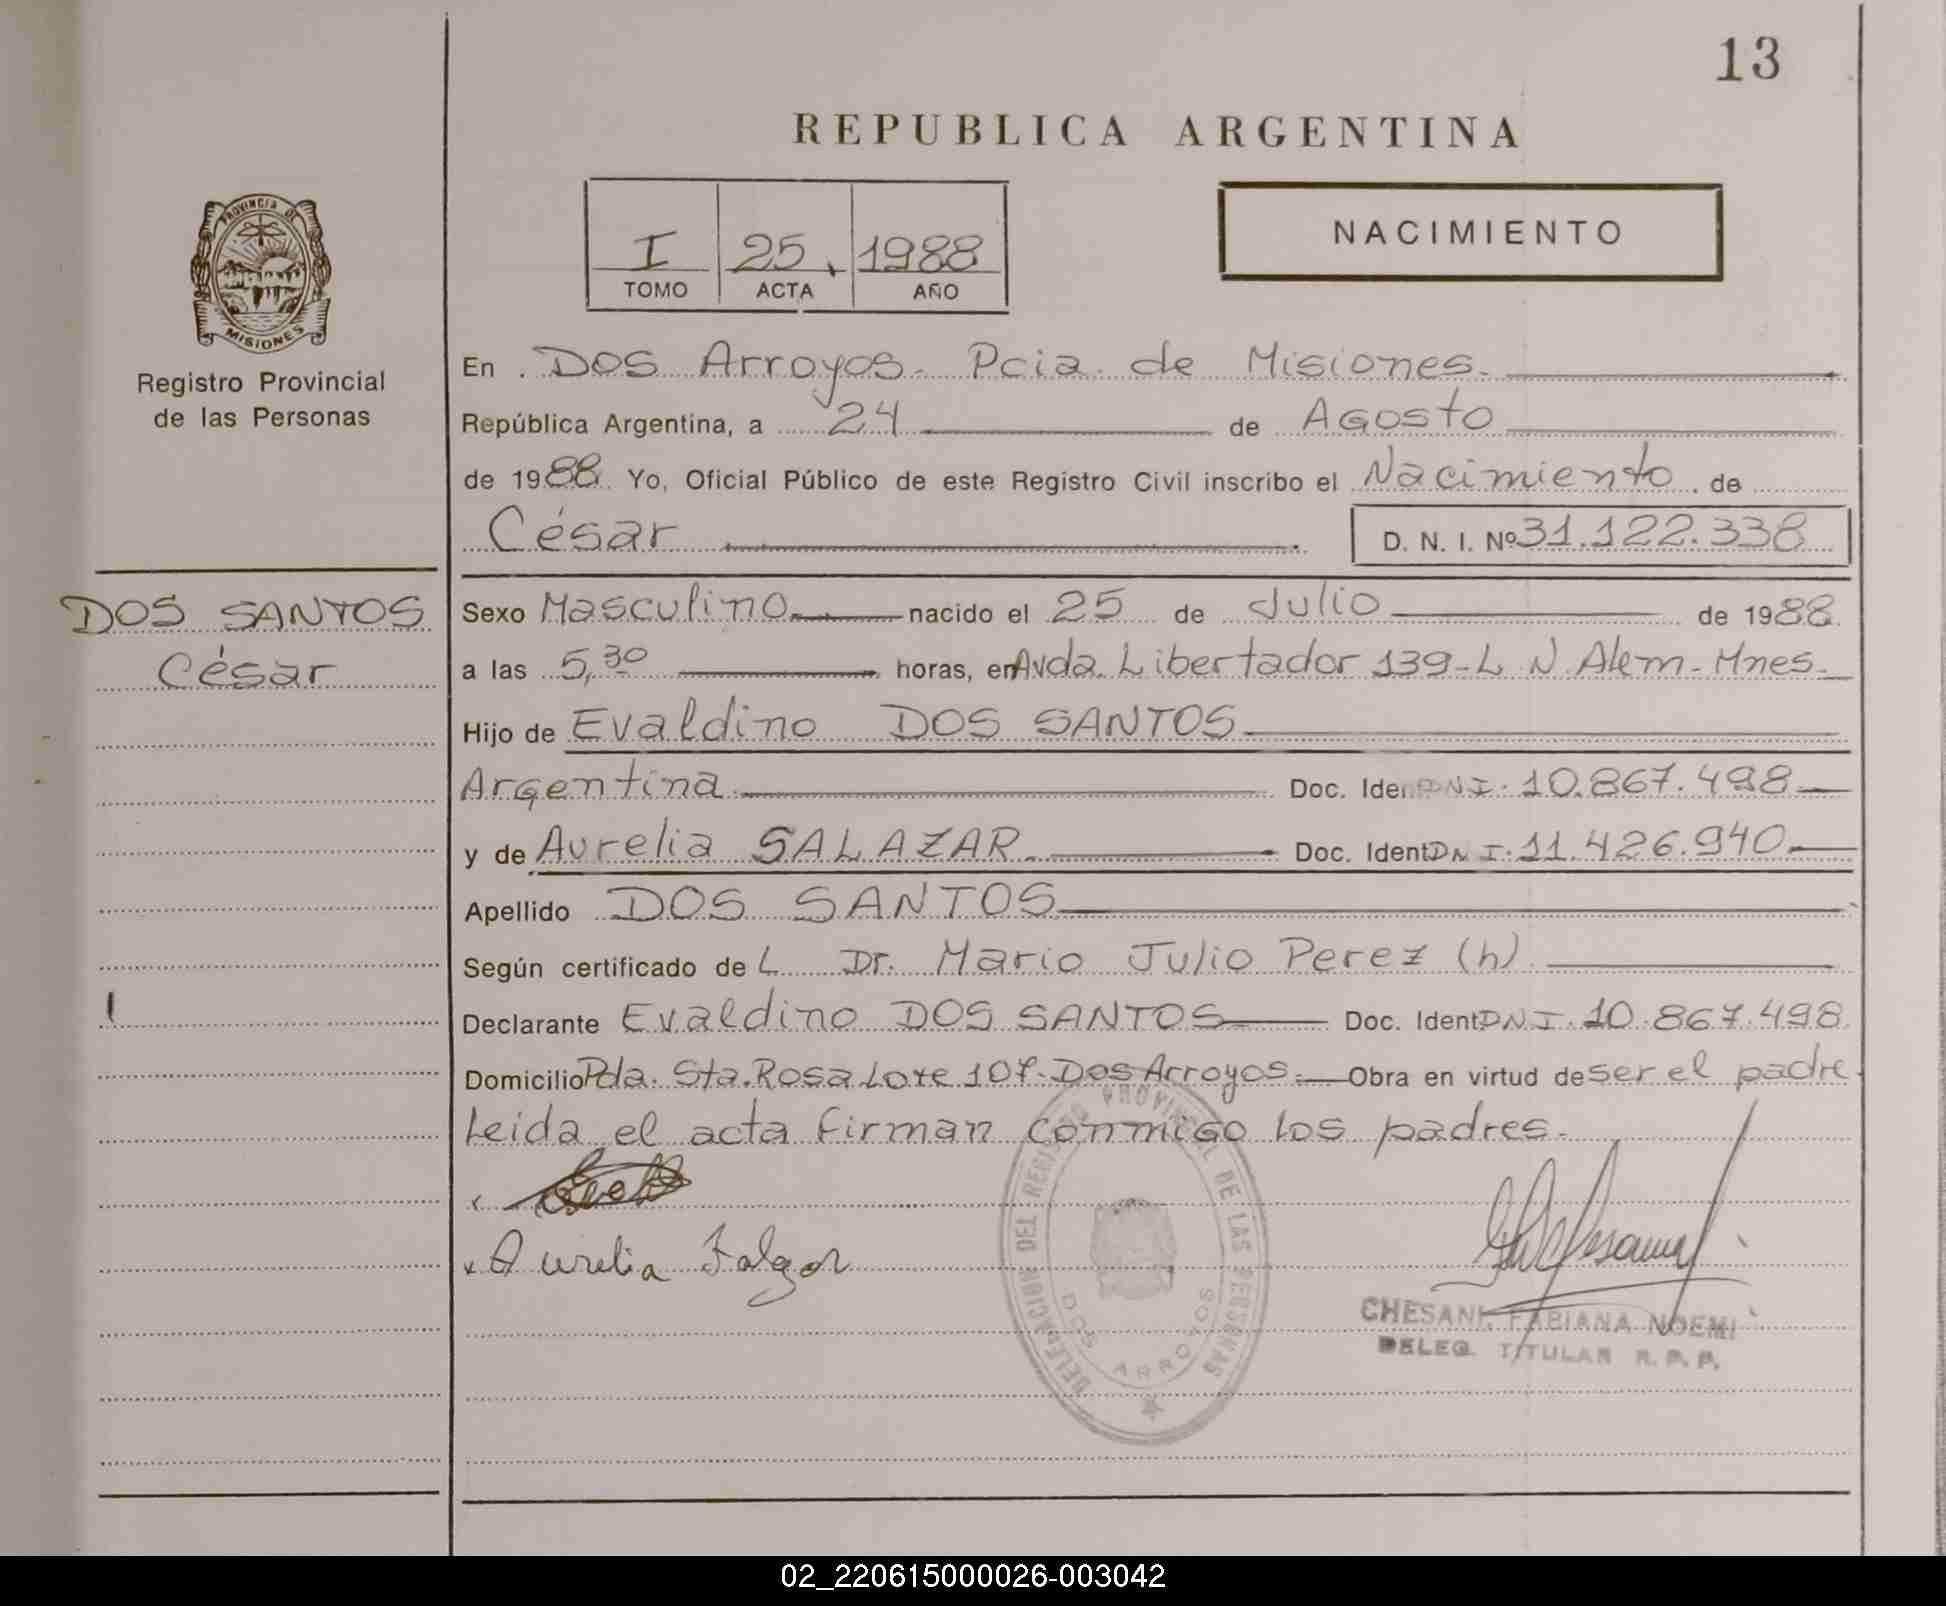 13
REPUBLICA ARGENTINA
I 25. 1988
TOMO ACTA AÑO
NACIMIENTO
PROVINCIA DE
MISIONES
Registro Provincial
de las Personas
En Dos Arroyos. Pcia. de Misiones.
República Argentina, a 24 de Agosto
de 1988 Yo, Oficial Público de este Registro Civil inscribo el Nacimiento de
César D. N. I. Nº 31.122.338
DOS SANTOS
César
Sexo Masculino nacido el 25 de Julio de 1988
a las 5,30 horas, en Avda. Libertador 139-L N. Alem- Mnes-
Hijo de Evaldino DOS SANTOS
Argentina Doc. Iden DNI. 10.867.498
y de Aurelia SALAZAR Doc. Ident DNI. 11.426.940
Apellido DOS SANTOS
Según certificado de L Dr. Mario Julio Perez (h)
Declarante Evaldino DOS SANTOS Doc. Ident DNI. 10.867.498
Domicilio Pda. Sta. Rosa Lote 107- Dos Arroyos. Obra en virtud de ser el padre.
Leida el acta firman conmigo los padres.
Aurelia
DELEGACION DEL REGISTRO PROVINCIAL DE LAS PERSONAS
DOS ARROYOS
CHESANI, FABIANA NOEMI
DELEG. TITULAR R. P. P.
02_220615000026-003042